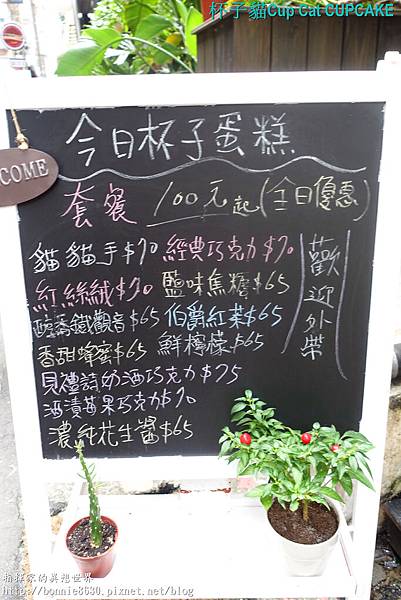 杯子貓Cup Cat CUPCAKE
COME
今日杯子蛋糕
套餐 100元起(全日優惠)
貓貓手$70 經典巧克力$70
紅絲絨$70 鹽味焦糖$65
鐵觀音$65 伯爵紅茶$65
香甜蜂蜜$65 鮮檸檬$65
貝禮詩奶酒巧克力$75
酒漬莓果巧克力$70
濃純花生醬$65
歡迎外帶
貓樣家的異想世界
http://bonnie8630.pixnet.net/blog